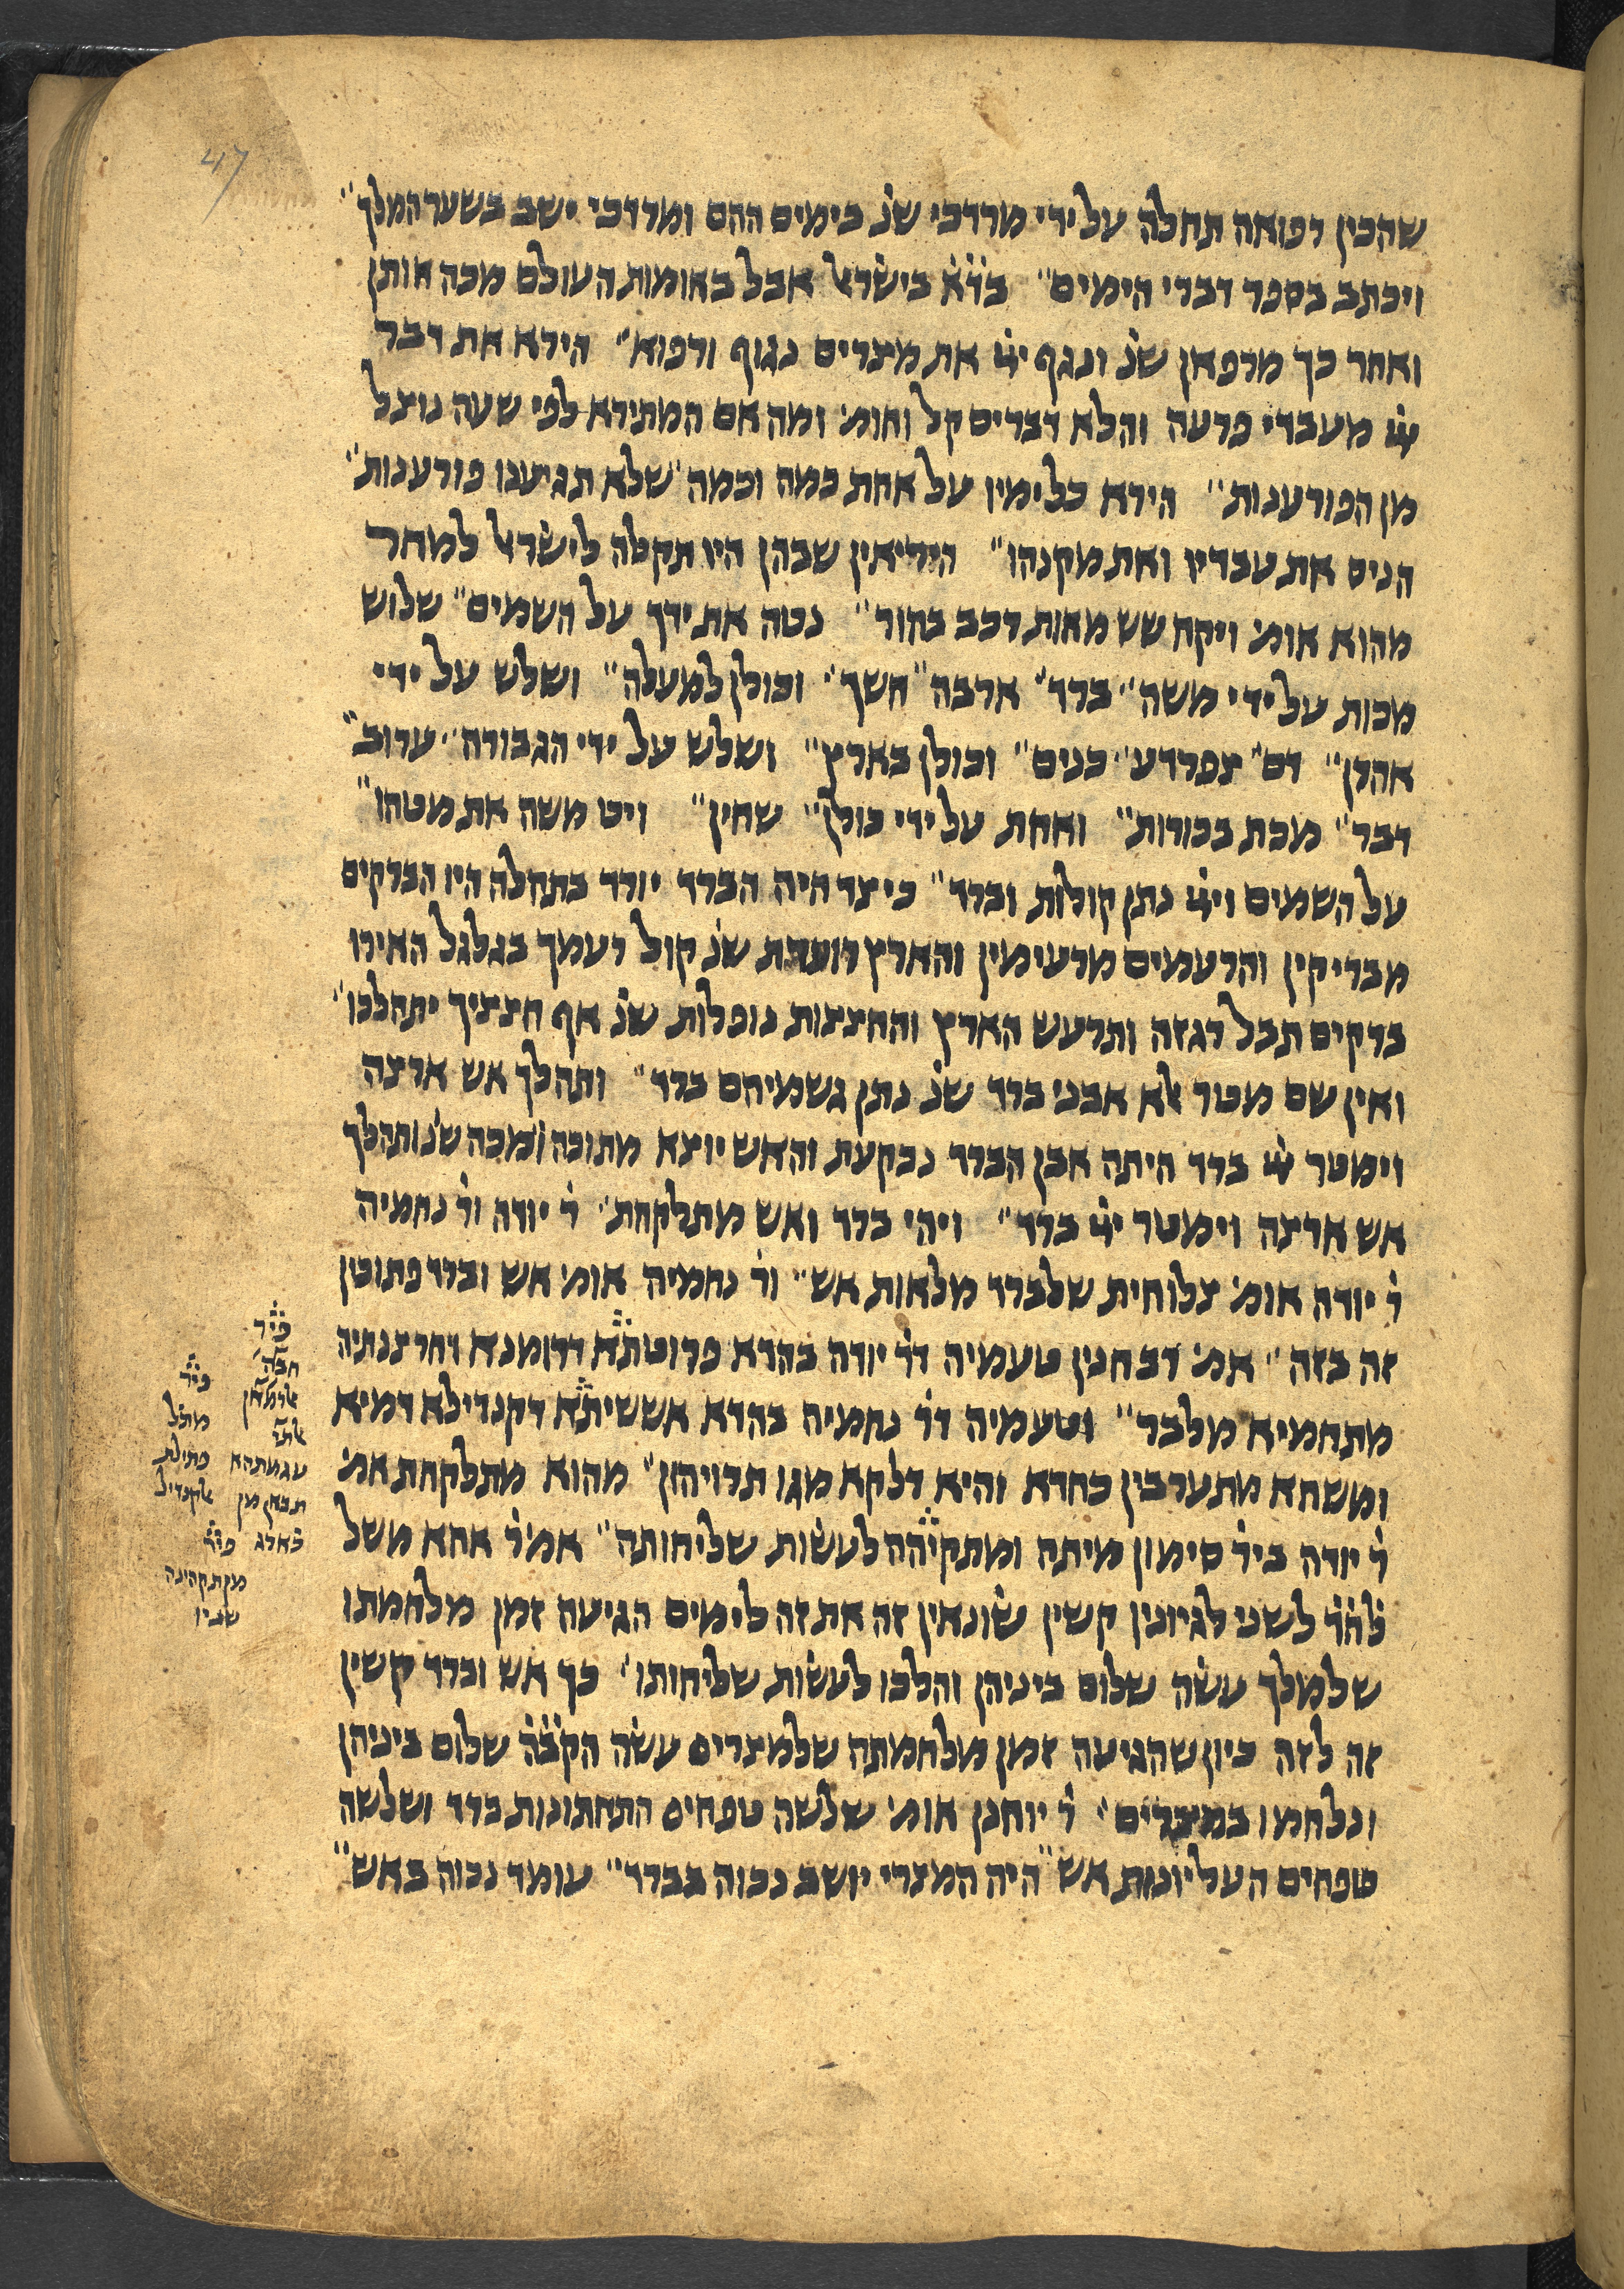 47
שהכין רפואה תחלה על ידי מרדכי שנ׳ בימים ההם ומרדכי ישב בשער המלך״
ויכתב בספר דברי הימים״ בד״א בישראל אבל באומות העולם מכה אותן
ואחר כך מרפאן שנ׳ ונגף ייי את מצרים נגוף ורפוא״ הירא את דבר
ייי מעבדי פרעה והלא דברים קל וחומ׳ ומה אם המתירא לפי שעה ניצל
מן הפורענות״ הירא כל ימיו על אחת כמה וכמה שלא תגיענו פורענות״
הניס את עבדיו ואת מקנהו״ היריאין שבהן היו תקלה לישראל למחר
מהוא אומ׳ ויקח שש מאות רכב בחור״ נטה את ידך על השמים״ שלוש
מכות על ידי משה״ ברד״ ארבה״ חשך״ וכולן למעלה״ ושלש על ידי
אהרן״ דם״ צפרדע״ כנים״ וכולן בארץ״ ושלש על ידי הגבורה״ ערוב״
דבר״ מכת בכורות״ ואחת על ידי כולן״ שחין״ ויט משה את מטהו״
על השמים וייי נתן קולות וברד״ כיצד היה הברד יורד בתחלה היו הברקים
מבריקין והרעמים מרעימין והארץ רועדת שנ׳ קול רעמך בגלגל האירו
ברקים תבל רגזה ותרעש הארץ והחצצות נופלות שנ׳ אף חצציך יתהלכו״
ואין שם מטר אלא אבני ברד שנ׳ נתן גשמיהם ברד״ ותהלך אש ארצה
וימטר ייי ברד היתה אבן הברד נבקעת והאש יוצא מתוכה ומכה שנ׳ ותהלך
אש ארצה וימטר ייי ברד״ ויהי ברד ואש מתלקחת׳ ר׳ יודה ור׳ נחמיה
ר׳ יודה אומ׳ צלוחית שלברד מלאות אש״ ור׳ נחמיה אומ׳ אש וברד פתוכין
זה בזה״ אמ׳ רב חנין טעמיה דר׳ יודה בהדא פרוטתא דרומנא דחרצנתיה
מתחמיא מלבר״ וטעמיה דר׳ נחמיה בהדא אששיתא דקנדילא דמיא
ומשחא מתערבין כחדא והיא דלקא מגו תרויהון״ מהוא מתלקחת אמ׳
ר׳ יודה ביר׳ סימון מיתה ומתקיהה לעשות שליחותה״ אמ׳ ר׳ אחא משל
לשני לגיונין קשין שונאין זה את זה לימים הגיעה זמן מלחמתו
שלמלך עשה שלום ביניהן והלכו לעשות שליחותו׳ כך אש וברד קשין
זה לזה כיון שהגיעה זמן מלחמתה שלמצרים עשה הקב״ה שלום ביניהן
ונלחמו במצרים׳ ר׳ יוחנן אומ׳ שלשה טפחים התחתונות ברד ושלשה
טפחים העליונות אש״ היה המצרי יושב נכוה בברד״ עומד נכוה באש״
פיר׳
חבה
אלרמאן
עגמתהא
תבאן מן
פיר׳
מתל
פתילת
אלקנדיל
פיר׳